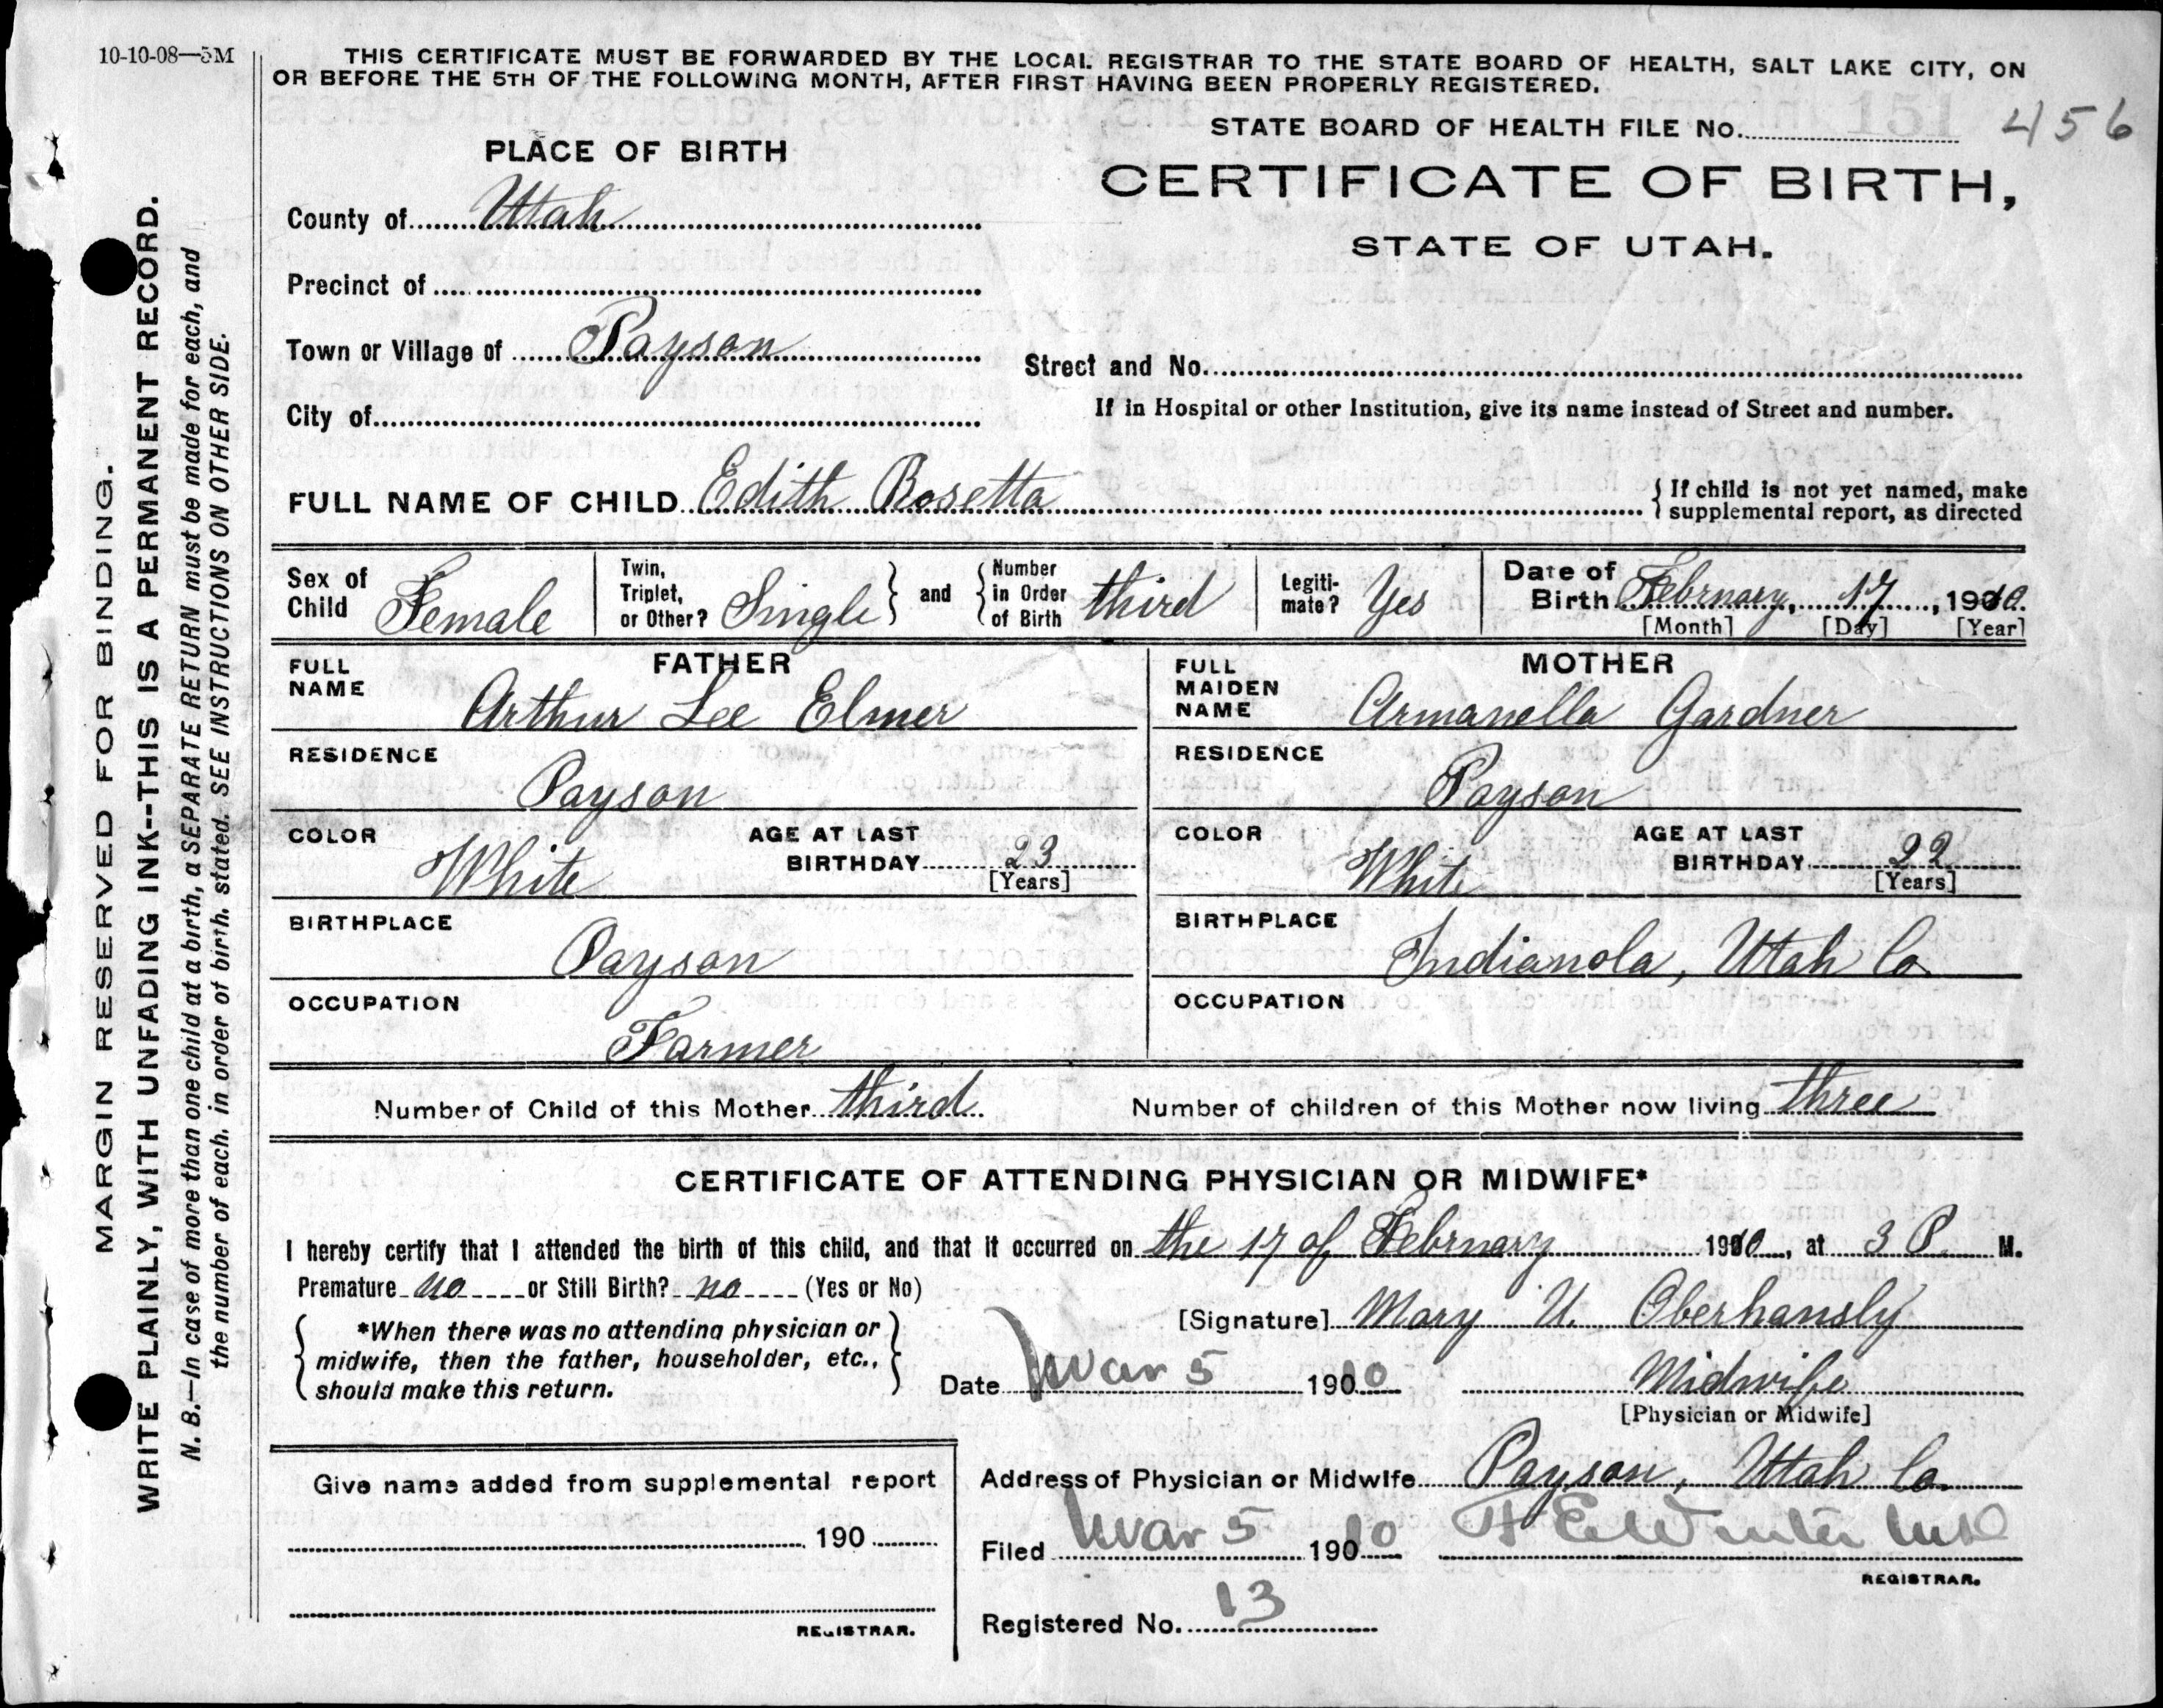 10-10-08—5M
THIS CERTIFICATE MUST BE FORWARDED BY THE LOCAL REGISTRAR TO THE STATE BOARD OF HEALTH, SALT LAKE CITY, ON
OR BEFORE THE 5TH OF THE FOLLOWING MONTH, AFTER FIRST HAVING BEEN PROPERLY REGISTERED.
STATE BOARD OF HEALTH FILE No. 456
PLACE OF BIRTH
CERTIFICATE OF BIRTH,
STATE OF UTAH.
County of Utah
Precinct of
Town or Village of Payson
Street and No.
City of
If in Hospital or other Institution, give its name instead of Street and number.
FULL NAME OF CHILD Edith Rosetta
If child is not yet named, make
supplemental report, as directed
Sex of Child Female
Twin, Triplet, or Other? Single and
Number in Order of Birth third
Legiti-mate? Yes
Date of Birth February, 17, 1910.
[Month] [Day] [Year]
FATHER
FULL NAME Arthur Lee Elmer
RESIDENCE Payson
COLOR White
AGE AT LAST BIRTHDAY 23
[Years]
BIRTHPLACE Payson
OCCUPATION Farmer
MOTHER
FULL MAIDEN NAME Armanella Gardner
RESIDENCE Payson
COLOR White
AGE AT LAST BIRTHDAY 22
[Years]
BIRTHPLACE Indianola, Utah Co
OCCUPATION
Number of Child of this Mother third
Number of children of this Mother now living three
CERTIFICATE OF ATTENDING PHYSICIAN OR MIDWIFE*
I hereby certify that I attended the birth of this child, and that it occurred on the 17 of February 1910, at 3 P. M.
Premature no or Still Birth? no (Yes or No)
[Signature] Mary U. Oberhansly
*When there was no attending physician or
midwife, then the father, householder, etc.,
should make this return.
Date Mar 5 1900
Midwife
[Physician or Midwife]
Give name added from supplemental report
190
REGISTRAR.
Address of Physician or Midwife Payson, Utah Co.
Filed Mar 5 1910 Winter
REGISTRAR.
Registered No. 13
MARGIN RESERVED FOR BINDING.
WRITE PLAINLY, WITH UNFADING INK--THIS IS A PERMANENT RECORD.
N. B.—In case of more than one child at a birth, a SEPARATE RETURN must be made for each, and
the number of each, in order of birth, stated. SEE INSTRUCTIONS ON OTHER SIDE.